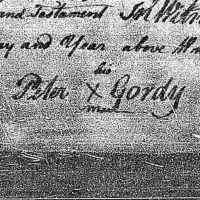 and Testament In Witn
ay and Year above W
his
Peter X Gordy
mark